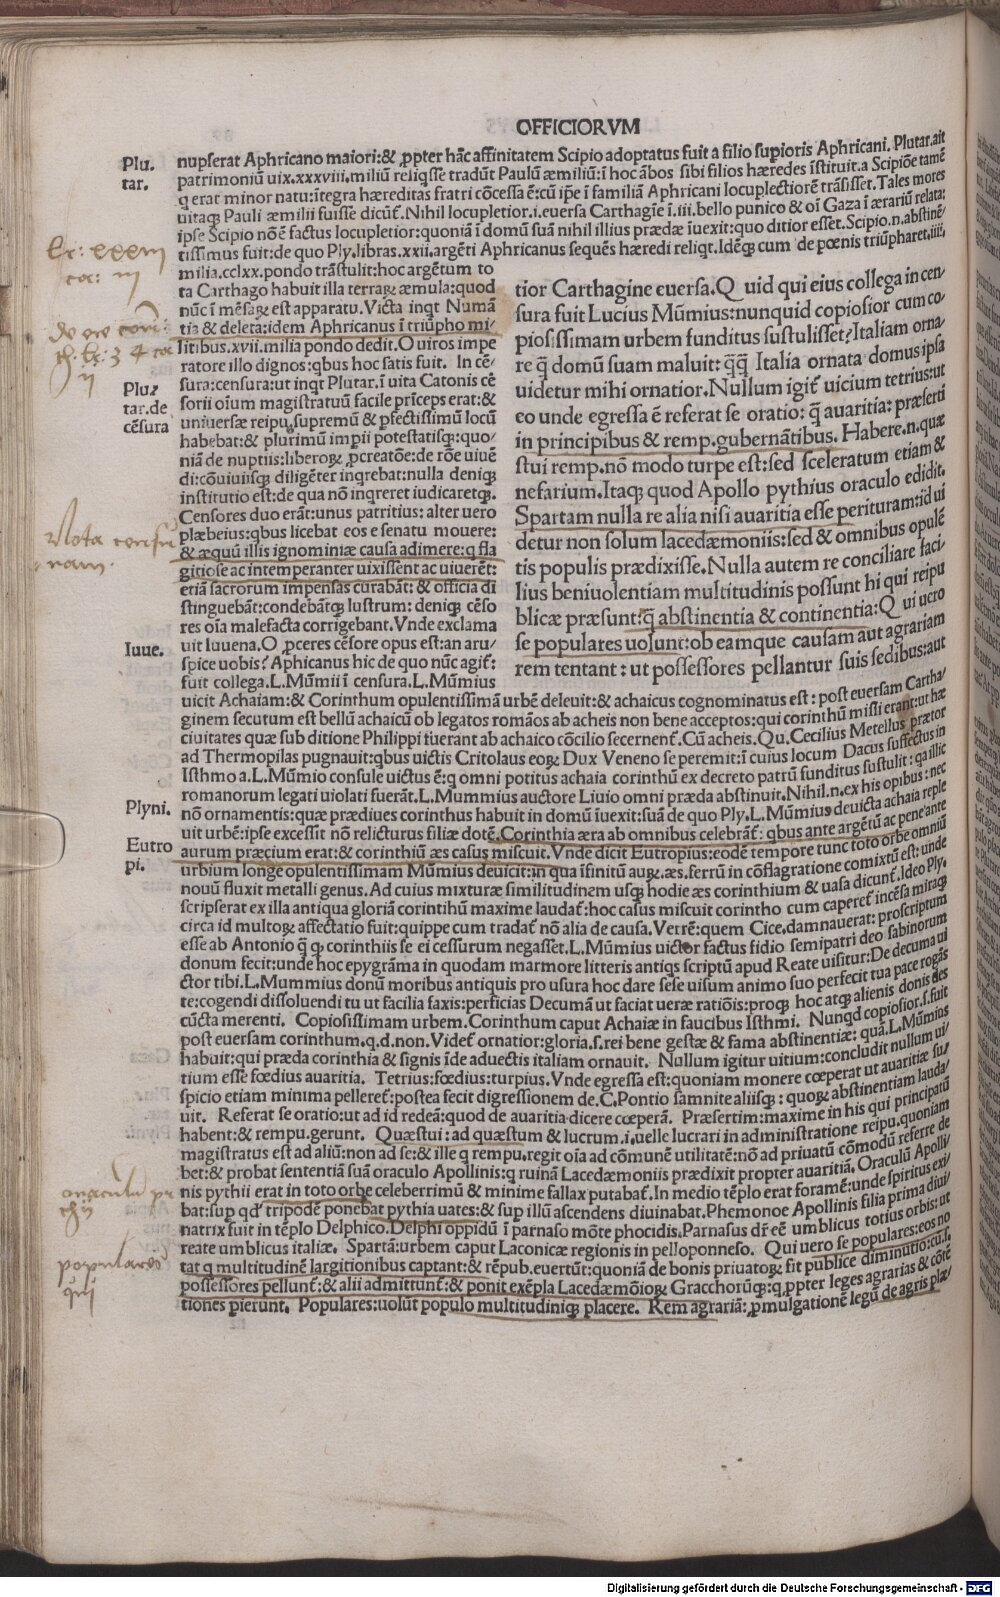 OFFICIORVM
Plu.
tar.
nupserat Aphricano maiori:& ꝓpter hāc affinitatem Scipio adoptatus fuit a filio supioris Aphricani. Plutar.ait
patrimoniū uix.xxxviii.miliū reliqsse tradūt Paulū æmiliū:ī hoc ābos sibi filios hæredes īstituit.a Scipiōe tamē
q erat minor natu:ītegra hæreditas fratri cōcessa ē:cū ip̄e ī familiā Aphricani locuplectiorē trāsisset.Tales mores
uitaqꝫ Pauli æmilii fuisse dicūt. Nihil locupletior.i.euersa Carthagīe ī.iii.bello punico & oī Gaza ī ærariū relata:
ipse Scipio nō ē factus locupletior:quoniā ī domū suā nihil illius prædæ īuexit:quo ditior esset. Scipio.n.abstinē/
tissimus fuit:de quo Ply.libras.xxii.argēti Aphricanus sequēs hæredi reliqt.Idēqꝫ cum de pœnis triūpharet.iiii.
milia.cclxx.pondo trāstulit:hoc argētum to
ta Carthago habuit illa terraꝝ æmula:quod
nūc ī mēsaꝝ est apparatu. Victa inqt Numā
tia & deleta:idem Aphricanus ī triūpho mi/
litibus.xvii.milia pondo dedit.O uiros impe
ratore illo dignos:qbus hoc satis fuit. In cē/
sura:censura:ut inqt Plutar.ī uita Catonis cē
sorii oīum magistratuū facile prīceps erat:&
uniuersæ reipu.supremū & pfectissimū locū
habebat:& plurimū impii potestatisqꝫ:quo/
niā de nuptiis:liberoꝝ ꝓcreatōe:de rōe uiuē
di:cōuiuiisqꝫ diligēter inqrebat:nulla deniqꝫ
institutio est:de qua nō inqreret iudicaretqꝫ.
Censores duo erāt:unus patritius: alter uero
plæbeius:qbus licebat eos e senatu mouere:
& æquū illis ignominiæ causa adimere:q fla
gitiose ac intemperanter uixissent ac uiuerēt:
etiā sacrorum impensas curabāt: & officia di
stinguebāt:condebātqꝫ lustrum: deniqꝫ cēso
res oīa malefacta corrigebant. Vnde exclama
uit Iuuena.O ꝓceres cēsore opus est:an aru/
spice uobis? Aphicanus hic de quo nūc agit:
fuit collega.L.Mūmii ī censura.L.Mūmius
Plu?
tar.de
cēsura
Iuue.
tior Carthagine euersa.Quid qui eius collega in cen
sura fuit Lucius Mūmius:nunquid copiosior cum co/
piosissimam urbem funditus sustulisset?Italiam orna/
re q̄ domū suam maluit: q̄q̄ Italia ornata domus ipsa
uidetur mihi ornatior.Nullum igit uicium tetrius:ut
eo unde egressa ē referat se oratio: q̄ auaritia: præserti
in principibus & remp.gubernātibus. Habere.n.quæ
stui remp.nō modo turpe est:sed sceleratum etiam &
nefarium.Itaqꝫ quod Apollo pythius oraculo edidit.
Spartam nulla re alia nisi auaritia esse perituram:id ui
detur non solum lacedæmoniis:sed & omnibus opulē
tis populis prædixisse.Nulla autem re conciliare faci/
lius beniuolentiam multitudinis possunt hi qui reipu
blicæ præsunt:q̄ abstinentia & continentia:Qui uero
se populares uolunt:ob eamque causam aut agrariam
rem tentant : ut possessores pellantur suis sedibus:aut
uicit Achaiam:& Corinthum opulentissimā urbē deleuit:& achaicus cognominatus est : post euersam Cartha/
ginem secutum est bellū achaicū ob legatos romāos ab acheis non bene acceptos:qui corinthū missi erant:ut hæ
ciuitates quæ sub ditione Philippi fuerant ab achaico cōcilio secernent. Cū acheis. Qu.Cecilius Metellus prætor
ad Thermopilas pugnauit:qbus uictis Critolaus eoꝝ Dux Veneno se peremit:ī cuius locum Dacus suffectus in
Isthmo a.L.Mūmio consule uictus ē:q omni potitus achaia corinthū ex decreto patrū funditus sustulit : qa illic
romanorum legati uiolati fuerāt.L.Mummius auctore Liuio omni præda abstinuit.Nihil.n.ex his opibus : nec
nō ornamentis:quæ prædiues corinthus habuit in domū īuexit:suā de quo Ply.L.Mūmius deuicta achaia reple
uit urbē:ipse excessit nō relicturus filiæ dotē.Corinthia æra ab omnibus celebrāt: qbus ante argētū ac pene ante
aurum præcium erat:& corinthiū æs casus miscuit.Vnde dicit Eutropius:eodē tempore tunc toto orbe omniū
urbium longe opulentissimam Mūmius deuicit:in qua ifinitū auꝝ.æs.ferrū in cōflagratione comixtū est: unde
nouū fluxit metalli genus. Ad cuius mixturæ similitudinem usqꝫ hodie æs corinthium & uasa dicunt.Ideo Ply.
scripserat ex illa antiqua gloriā corintihū maxime laudat:hoc casus miscuit corintho cum caperet incēsa miraqꝫ
circa id multoꝝ affectatio fuit:quippe cum tradat nō alia de causa.Verrē:quem Cice.damnauerat: proscriptum
esse ab Antonio q̄ qꝫ corinthiis se ei cessurum negasset.L.Mūmius uictor factus fidio semipatri deo sabinorum
donum fecit:unde hoc epygrāma in quodam marmore litteris antiqs scriptū apud Reate uisitur:De decuma ui
ctor tibi.L.Mummius donū moribus antiquis pro usura hoc dare sese uisum animo suo perfecit tua pace rogās
te:cogendi dissoluendi tu ut facilia faxis:perficias Decumā ut faciat ueræ ratiōis:proqꝫ hoc atqꝫ alienis donis des
cūcta merenti. Copiosissimam urbem.Corinthum caput Achaiæ in faucibus Isthmi. Nunqd copiosior.s.fuit
post euersam corinthum.q.d.non.Videt ornatior:gloria.s.rei bene gestæ & fama abstinētiæ: quā.L.Mūmius
habuit:qui præda corinthia & signis īde aduectis italiam ornauit. Nullum igitur uitium:concludit nullum ui/
tium esse fœdius auaritia. Tetrius:fœdius:turpius.Vnde egressa est:quoniam monere cœperat ut auaritiæ su/
spicio etiam minima pelleret:postea fecit digressionem de.C.Pontio samnite aliisqꝫ : quoꝝ abstinentiam lauda/
uit. Referat se oratio:ut ad id redeā:quod de auaritia dicere cœperā. Præsertim:maxime in his qui principatū
habent:& rempu.gerunt. Quæstui : ad quæstum & lucrum.i.uelle lucrari in administratione reipu.quoniam
magistratus est ad aliū:non ad se:& ille q rempu.regit oīa ad cōmunē utilitatē:nō ad priuatū cōmodū referre de
bet:& probat sententiā suā oraculo Apollinis:q ruinā Lacedæmoniis prædixit propter auaritiā. Oraculū Apolli/
nis pythii erat in toto orbe celeberrimū & minime fallax putabat. In medio tēplo erat foramē:unde spiritus exi/
bat:sup qd tripodē ponebat pythia uates:& sup illū ascendens diuinabat.Phemonoe Apollinis filia prima diui/
natrix fuit in tēplo Delphico.Delphi oppidū ī parnaso mōte phocidis.Parnasus dr̄ eē umblicus totius orbis: ut
reate umblicus italiæ. Spartā:urbem caput Laconicæ regionis in pelloponneso. Qui uero se populares:eos no
tat q multitudinē largitionibus captant:& rēpub.euertūt:quoniā de bonis priuatoꝝ fit publice diminutio:cū.s.
possessores pellunt:& alii admittunt:& ponit exēpla Lacedæmōioꝝ Gracchorūqꝫ:q ꝓpter leges agrarias & cōtē
tiones pierunt. Populares:uolūt populo multitudiniqꝫ placere. Rem agrariā: ꝓmulgationē legū de agris plæ/
Plyni.
Eutro
pi.
Nota censu
ram.
populares
qui